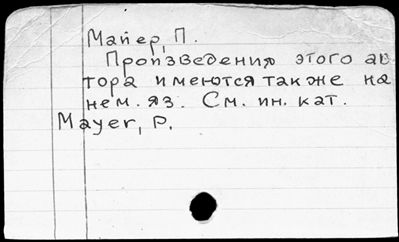 Майер, П.
Произведения этого ав-
тора имеются также на
нем. яз. См. ин. кат.
Mayer, P.